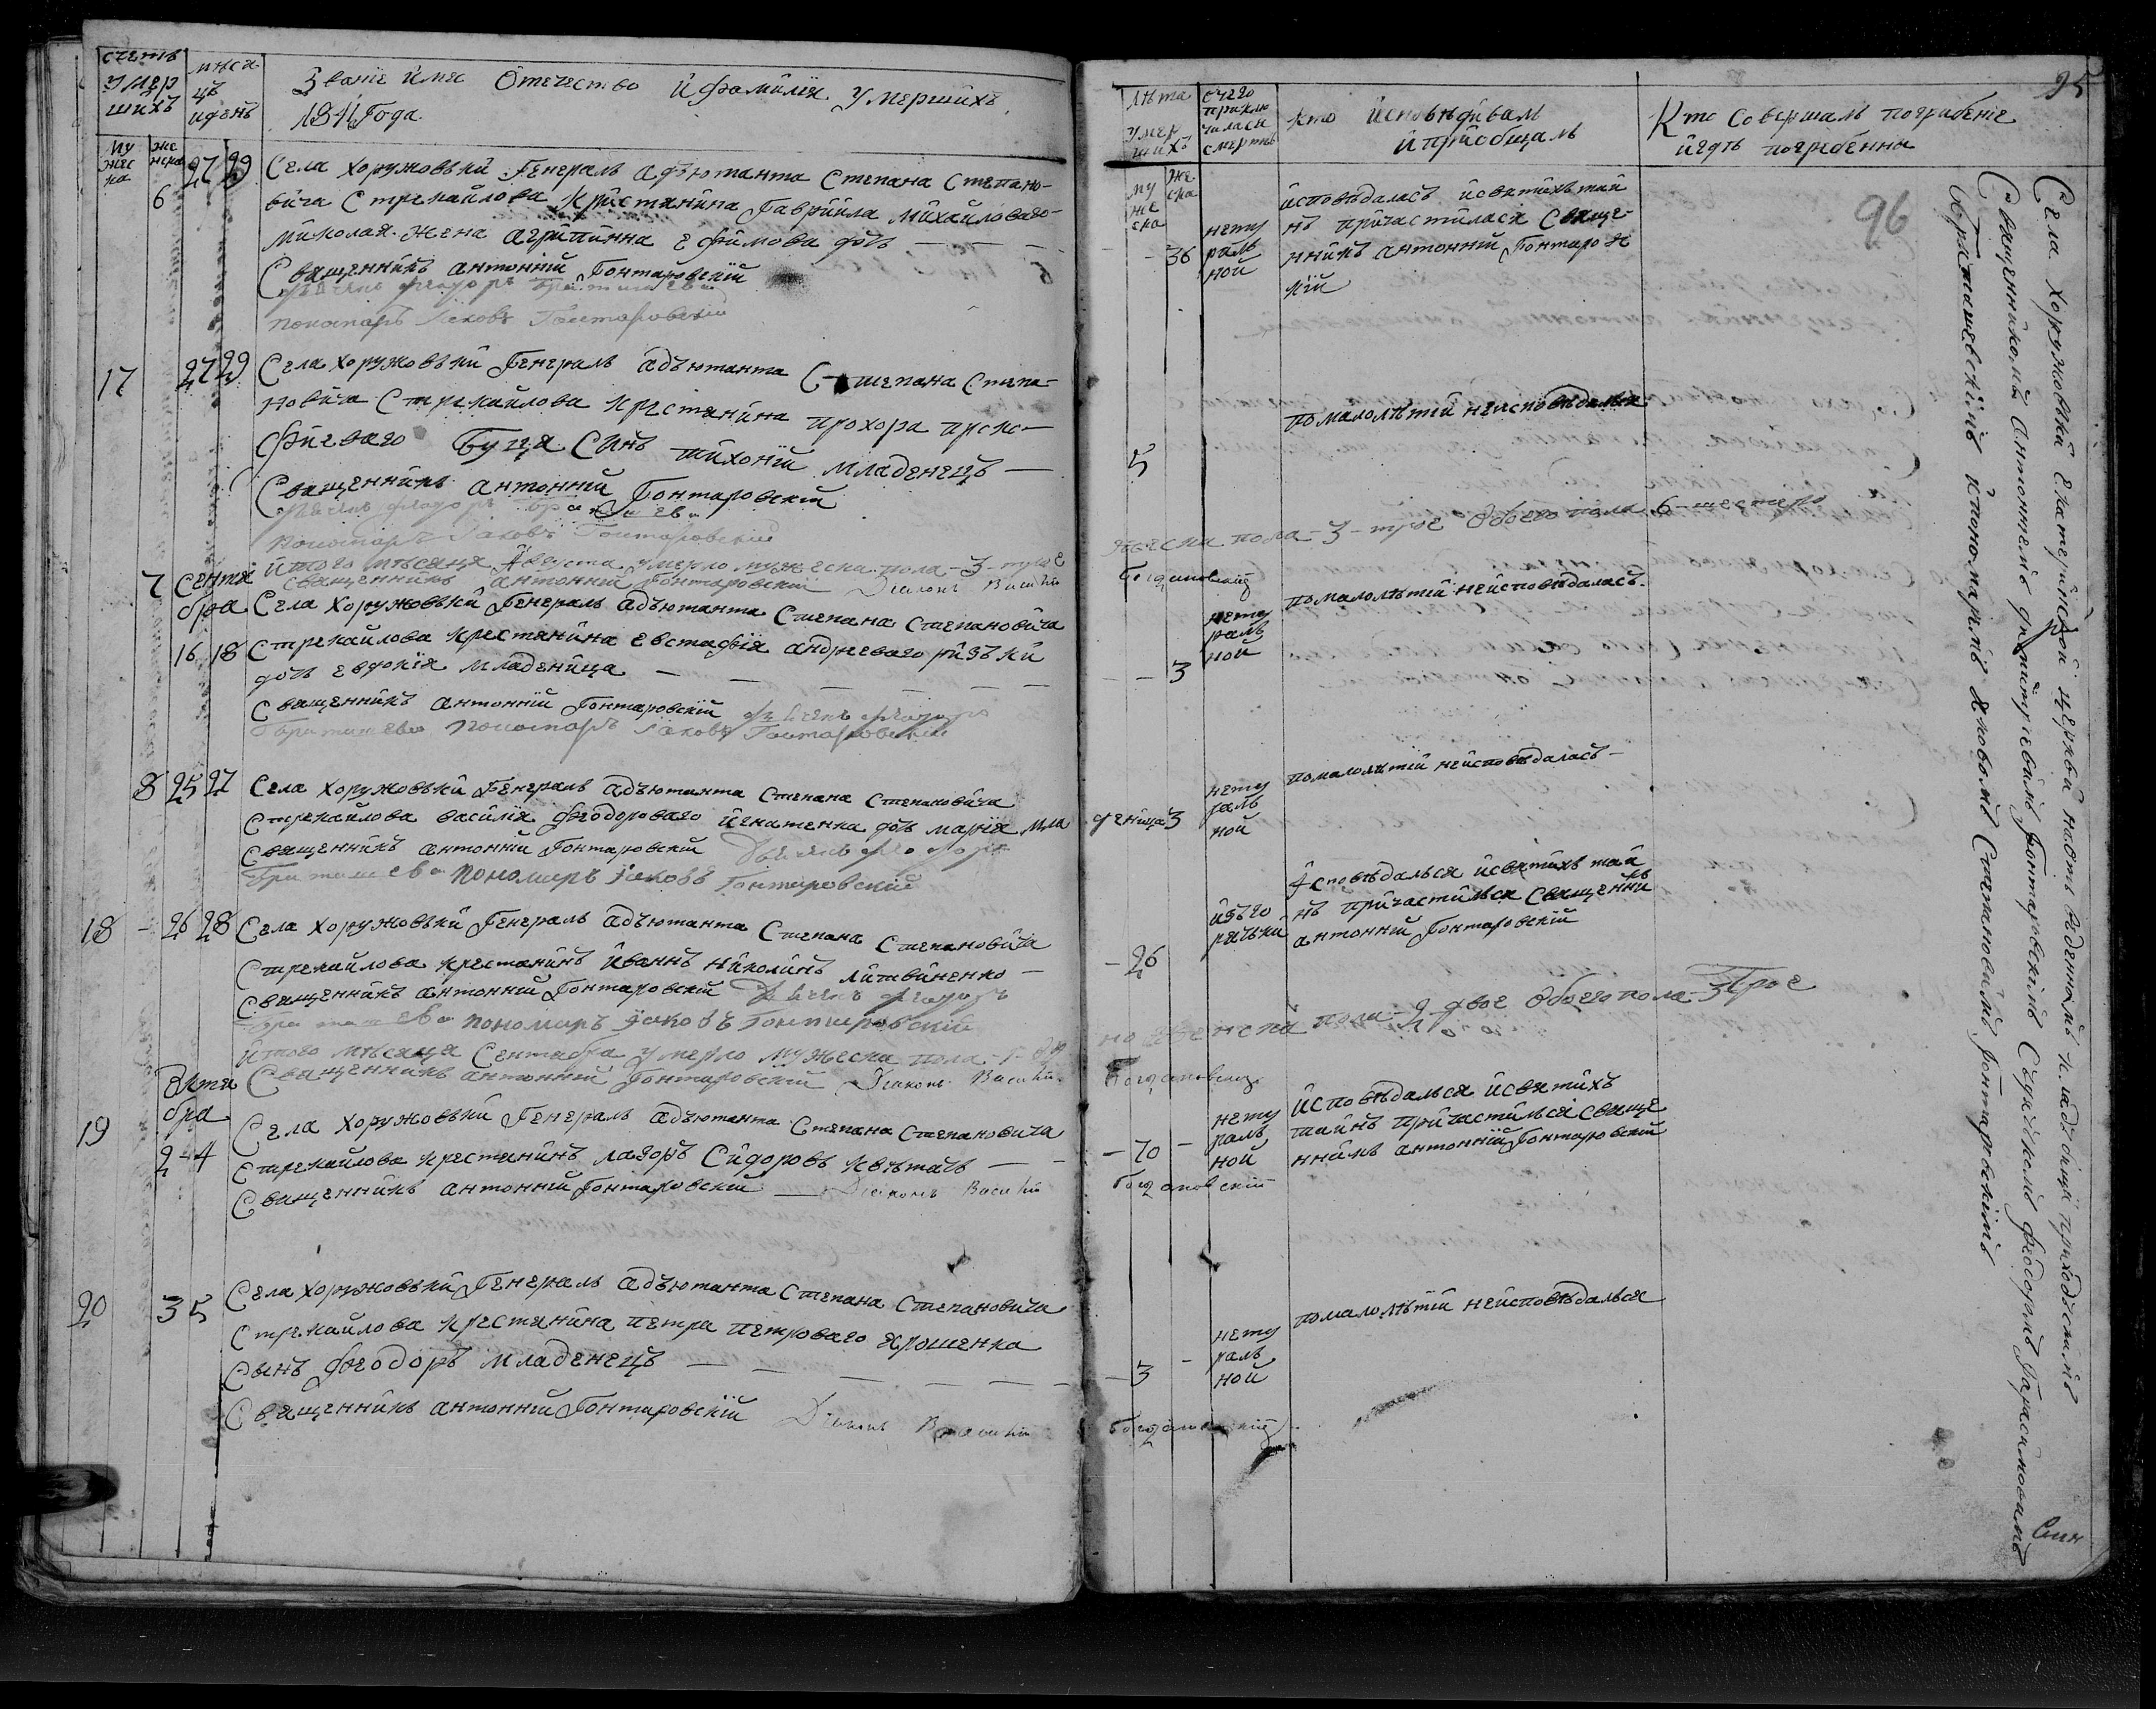 счетъ
умер
шихъ
мнся
цъ
иденъ
Званїе имя Отечество и фамилїя умершихъ
1811 Года.
му
жес
ка
же
нска
6
27 29
Села Хоружовъки Генералъ адъютанта Степана Степано-
вича Стрекайлова крїстянина Гаврїила Михайловаго
Миколая жена агрипинна ефимова дочь — — —
Священникъ антонїй Гонтаровскїй
пономаръ Іаковъ Гонтаровскїй
17
27 29
Села Хоружовъки Генералъ адъютанта Степана Степа-
новича Стрекайлова крестянина прохора проко-
фїеваго Буця Синъ тихонїй младенецъ —
Священникъ антонїй Гонтаровскїй
пономаръ Іаковъ Гонтаровскїй
Итого мѣсяця Августа умерло мужеска пола - 3 - трое
священникъ антонїй Гонтаровскїй Дїаконъ Василїй
7
Сентя
бра
16 18
Села Хоружовъки Генералъ адъютанта Степана Степановича
Стрекайлова крестянина евстафїя андреваго рїзъки
дочъ евдокїя младеница —
Священникъ антонїй Гонтаровскїй
пономаръ Іаковъ Гонтаровскїй
8 25 27
Села Хоружовъки Генералъ адъютанта Степана Степановича
Стрекайлова василїя феодороваго игнатенка дочъ марїя мла
Священникъ антонїй Гонтаровскїй
пономаръ Іаковъ Гонтаровскїй
18 - 26 28
Села Хоружовъки Генералъ адъютанта Степана Степановича
Стрекайлова крестянинъ иваннъ николинъ литвиненко —
Священникъ антонїй Гонтаровскїй
пономаръ Іаковъ Гонтаровскїй
Итого мѣсяця Сентабра умерло мужеска пола - 1 -
Священникъ антонїй Гонтаровскїй Дїаконъ Василїй
Октя
бра
19
2 4
Села Хоружовъки Генералъ адъютанта Степана Степановича
Стрекайлова крестянинъ лазоръ Сидоровъ квѣтачъ — —
Священникъ антонїй Гонтаровскїй — Дїаконъ Василїй
20
3 5
Села Хоружовъки Генералъ адъютанта Степана Степановича
Стрекайлова крестянина петра петроваго ярошенка
Сынъ феодоръ младенецъ — — — — —
Священникъ антонїй Гонтаровскїй Дїаконъ Василїй
95
96
лѣта
умер
шихъ
отчего
приклю
чилася
смертъ
кто исповѣдивалъ
и прїобщалъ
Кто Совершалъ погрибенїе
игдѣ погребенны
му
же
ска
же
ска
- 36
нету
ралъ
ной
исповѣдаласъ исвятихъ тай
нъ причастиласа Свяще-
нникъ антонїй Гонтаров
кїй
5
помалолѣтїй неисповѣдалъся
женска пола - 3 - трое Обоего пола 6 - шестеро
Богдановскїй
- - 3
нету
ралъ
ной
помалолѣтїй неисповѣдаласъ.
деница 3
нету
ралъ
ной
помалолѣтїй неисповѣдаласъ —
- 26
изъго
рячъки
исповѣдалъся исвятихъ тай
нъ причастилъся Священникъ
антонїй Гонтаровскїй
но женска пола - 2 двое Обоего пола - 3 Трое
Богдановскїй
- 70 -
нету
ралъ
ной
исповѣдалъся исвятихъ
тайнъ причастилъся Свяще
нникъ антонїй Гонтаровскїй
Богдановскїй
- 3 -
нету
ралъ
ной
помалолѣтїй неисповѣдалъся
Богдановскїй
Села Хоружовъки
Священникомъ Антонїемъ димитрїевимъ Гонтаровскимъ
Браташевскїмъ ипономаремъ яковомъ Степановимъ Гонтаровскїмъ